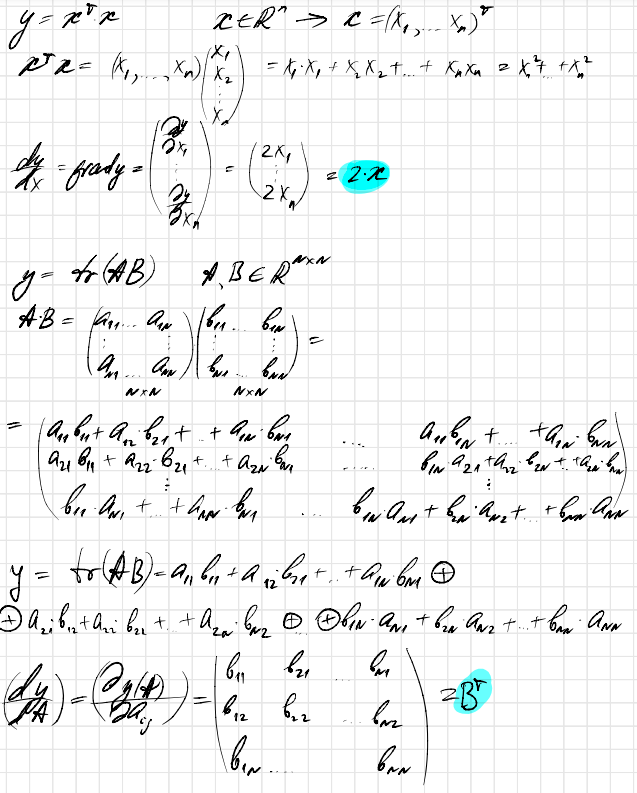 y = xᵀ·x    x ∈ ℝⁿ → x = (x₁, ... xₙ)ᵀ
xᵀx = (x₁, ..., xₙ) (x₁ x₂ ⋮ xₙ) = x₁·x₁ + x₂x₂ + ... + xₙxₙ = xₙ² + ... + xₙ²
dy/dx = grad y = (∂y/∂x₁ ⋮ ∂y/∂xₙ) = (2x₁ ⋮ 2xₙ) = 2·x
y = tr(AB)    A, B ∈ ℝᴺˣᴺ
A·B = (a₁₁ ... a₁N ⋮ ⋮ aN1 ... aNN) N×N (b₁₁ ... b₁N ⋮ ⋮ bN1 ... bNN) N×N =
= (a₁₁b₁₁ + a₁₂·b₂₁ + ... + a₁N·bN1 .... a₁₁b₁N + ... + a₁N·bNN
a₂₁b₁₁ + a₂₂·b₂₁ + ... + a₂N·bN1 .... b₁N·a₂₁ + a₂₂·b₂N + ... + a₂N·bNN
⋮ ⋮
b₁₁·aN1 + ... + aNN·bN1 ... b₁N aN1 + b₂N·aN2 + ... + bNN aNN)
y = tr(AB) = a₁₁b₁₁ + a₁₂·b₂₁ + ... + a₁N·bN1 ⊕
⊕ a₂₁·b₁₂ + a₂₂·b₂₂ + ... + a₂N·bN2 ⊕ ... ⊕ b₁N·aN1 + b₂N·aN2 + ... + bNN·aNN
(dy/dA) = (∂y(A)/∂aᵢⱼ) = (b₁₁ b₂₁ ... bN1
b₁₂ b₂₂ ... bN2
b₁N .... bNN) = Bᵀ